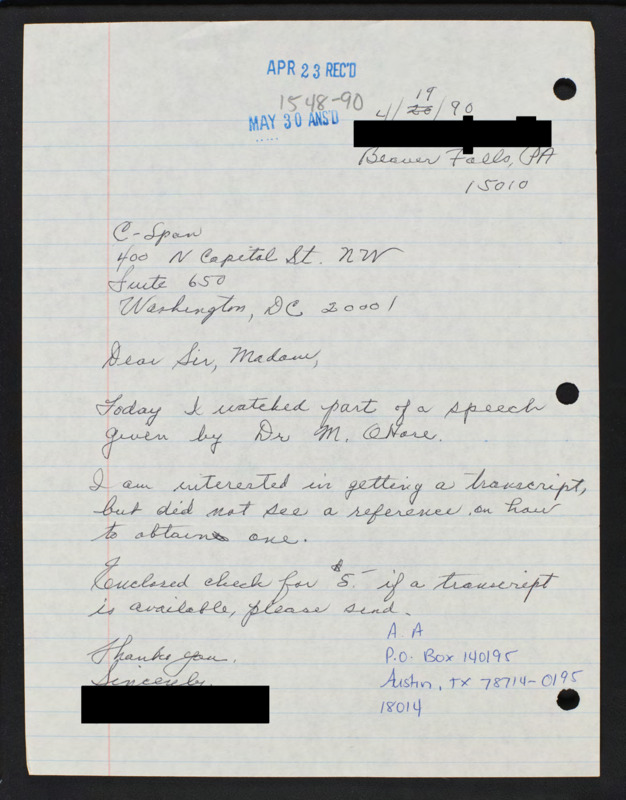 APR 23 REC'D
1548-90
MAY 30 ANS'D
4/19/90
Beaver Falls, PA
15010
C-Span
400 N Capital St. NW
Suite 650
Washington, DC 20001
Dear Sir, Madam,
Today I watched part of a speech
given by Dr M. OHare.
I am interested in getting a transcript,
but did not see a reference on how
to obtain one.
Enclosed check for $5.- if a transcript
is available, please send.
Thank you.
Sincerely,
A. A
P.O. Box 140195
Austin, TX 78714-0195
18014